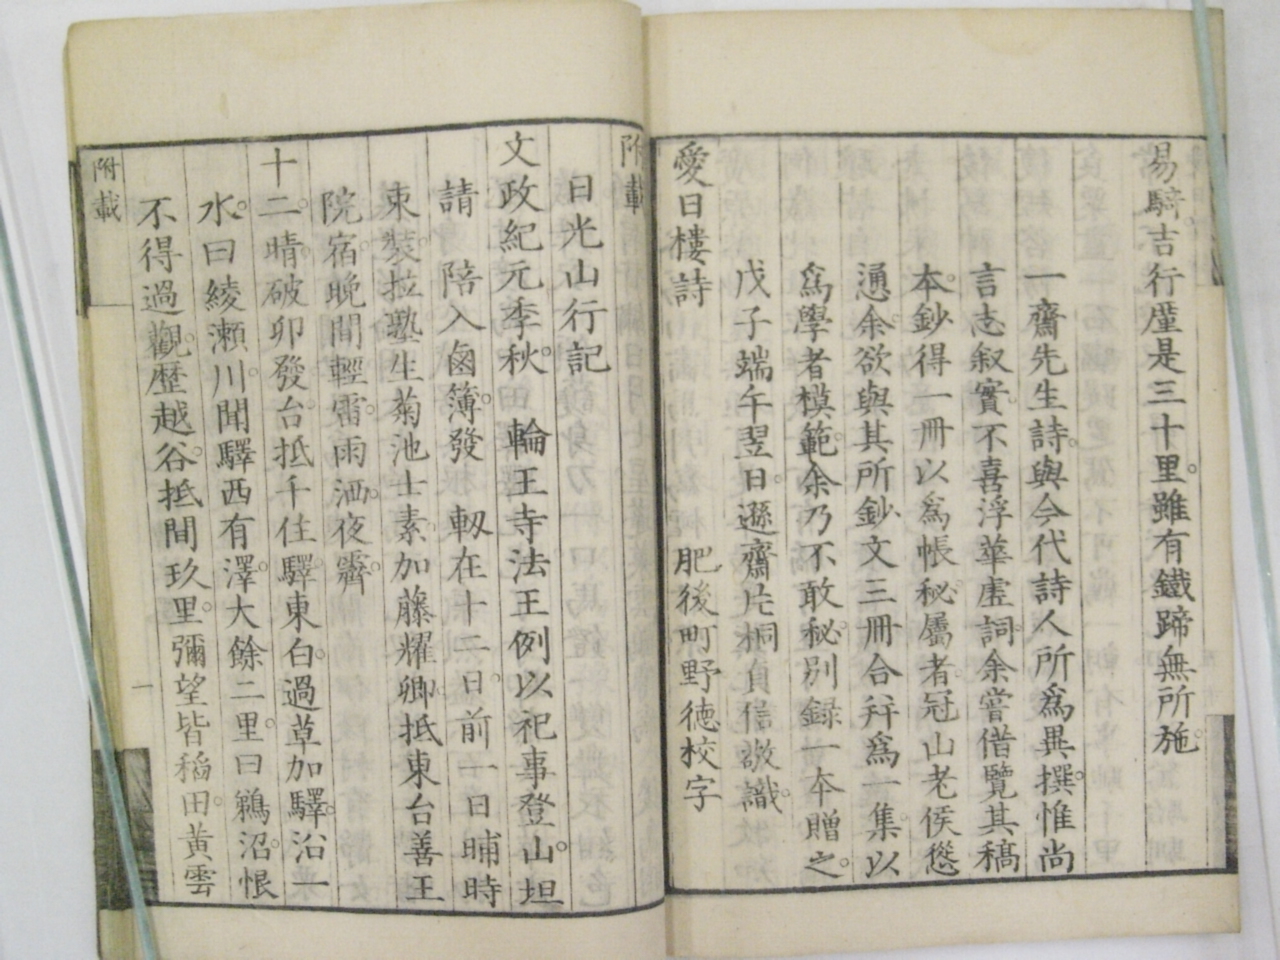 易騎吉行廑是三十里。雖有鐵蹄無所施。
一齋先生詩。與今代詩人所爲異撰。惟尚
言志叙實。不喜浮華虛詞。余嘗借覽其稿
本。鈔得一冊以爲帳秘。屬者。冠山老侯慫
慂。余欲與其所鈔文三冊合并爲一集。以
爲學者模範。余乃不敢秘。別録一本贈之。
戊子端午翌日。遜齋片桐貞信敬識。
愛日樓詩
肥後町野德校字
附載
日光山行記
文政紀元季秋。輪王寺法王例以祀事登山。坦
請陪入鹵簿。發軔在十二日。前一日晡時
束裝。拉塾生菊池士素。加藤耀卿。抵東台善王
院宿。晚間輕雷。雨洒。夜霽。
十二。晴。破卯發台。抵千住驛。東白。過草加驛。沿一
水。曰綾瀨川。聞驛西有澤。大餘二里。曰鵜沼。恨
不得過觀。歷越谷。抵間玖里。彌望皆稻田。黃雲
附載
一